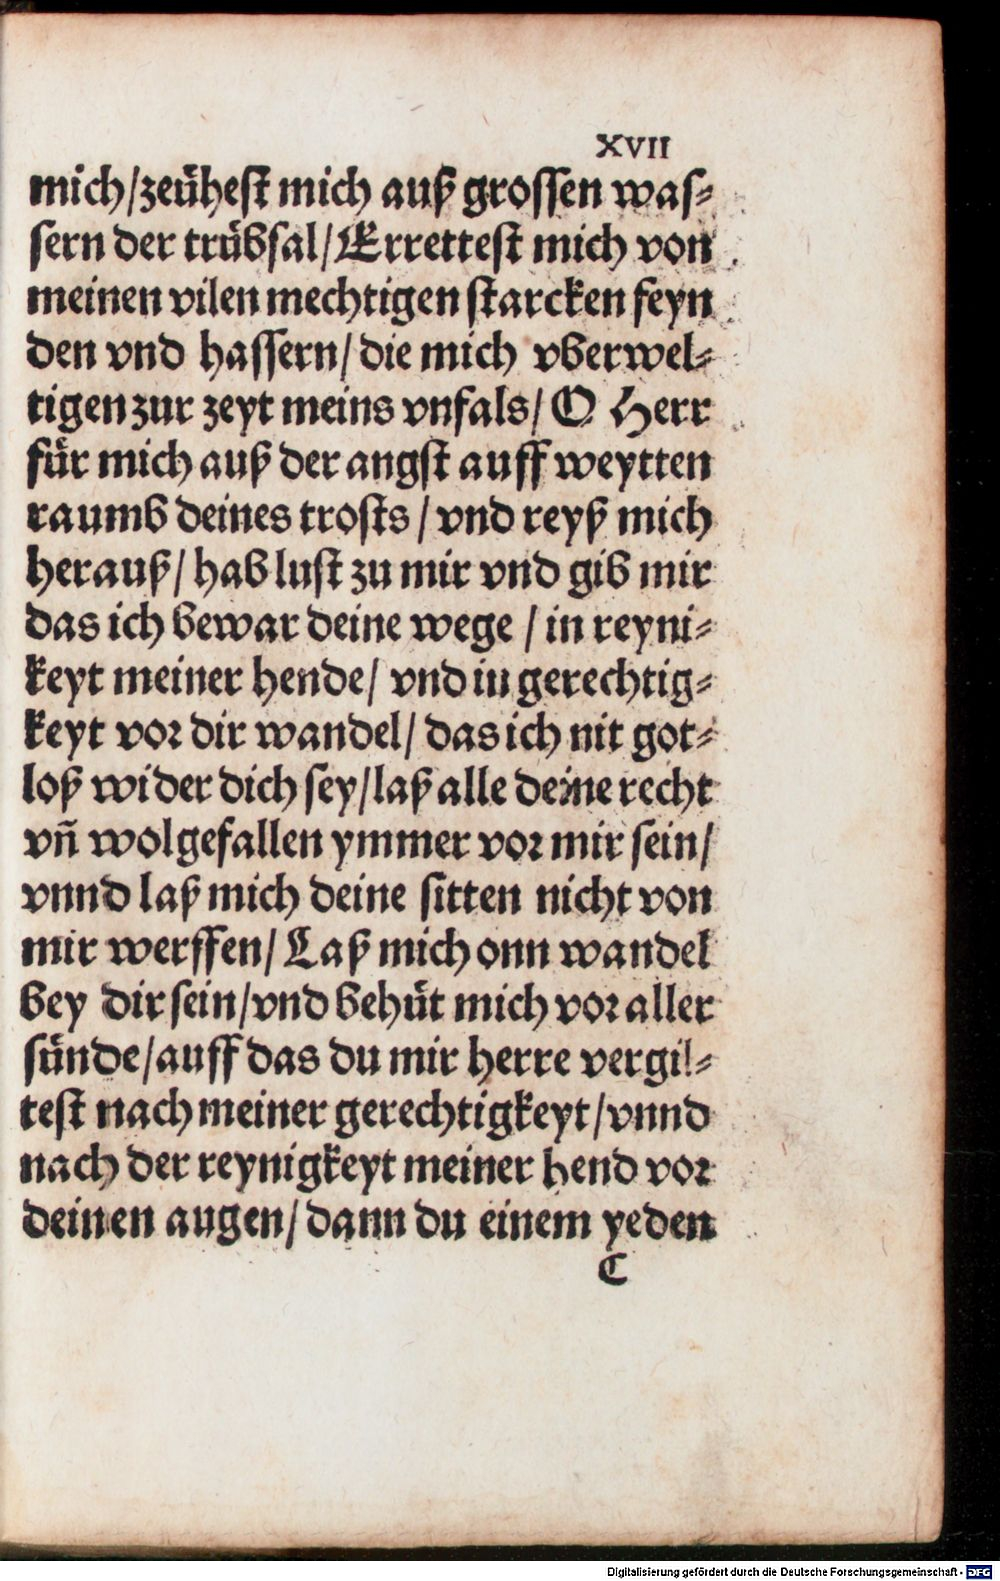 XVII
mich/zeühest mich auß grossen was-
sern der trübsal/Errettest mich von
meinen vilen mechtigen starcken feyn
den vnd hassern/die mich vberwel-
tigen zur zeyt meins vnfals/O Herr
für mich auß der angst auff weytten
raumb deines trosts/vnd reyß mich
herauß/hab lust zu mir vnd gib mir
das ich bewar deine wege/in reyni-
keyt meiner hende/vnd in gerechtig-
keyt vor dir wandel/das ich nit got-
loß wider dich sey/laß alle deine recht
vñ wolgefallen ymmer vor mir sein/
vnnd laß mich deine sitten nicht von
mir werffen/Laß mich onn wandel
bey dir sein/vnd behüt mich vor aller
sünde/auff das du mir herre vergil-
test nach meiner gerechtigkeyt/vnnd
nach der reynigkeyt meiner hend vor
deinen augen/dann du einem yeden
C
Digitalisierung gefördert durch die Deutsche Forschungsgemeinschaft - DFG